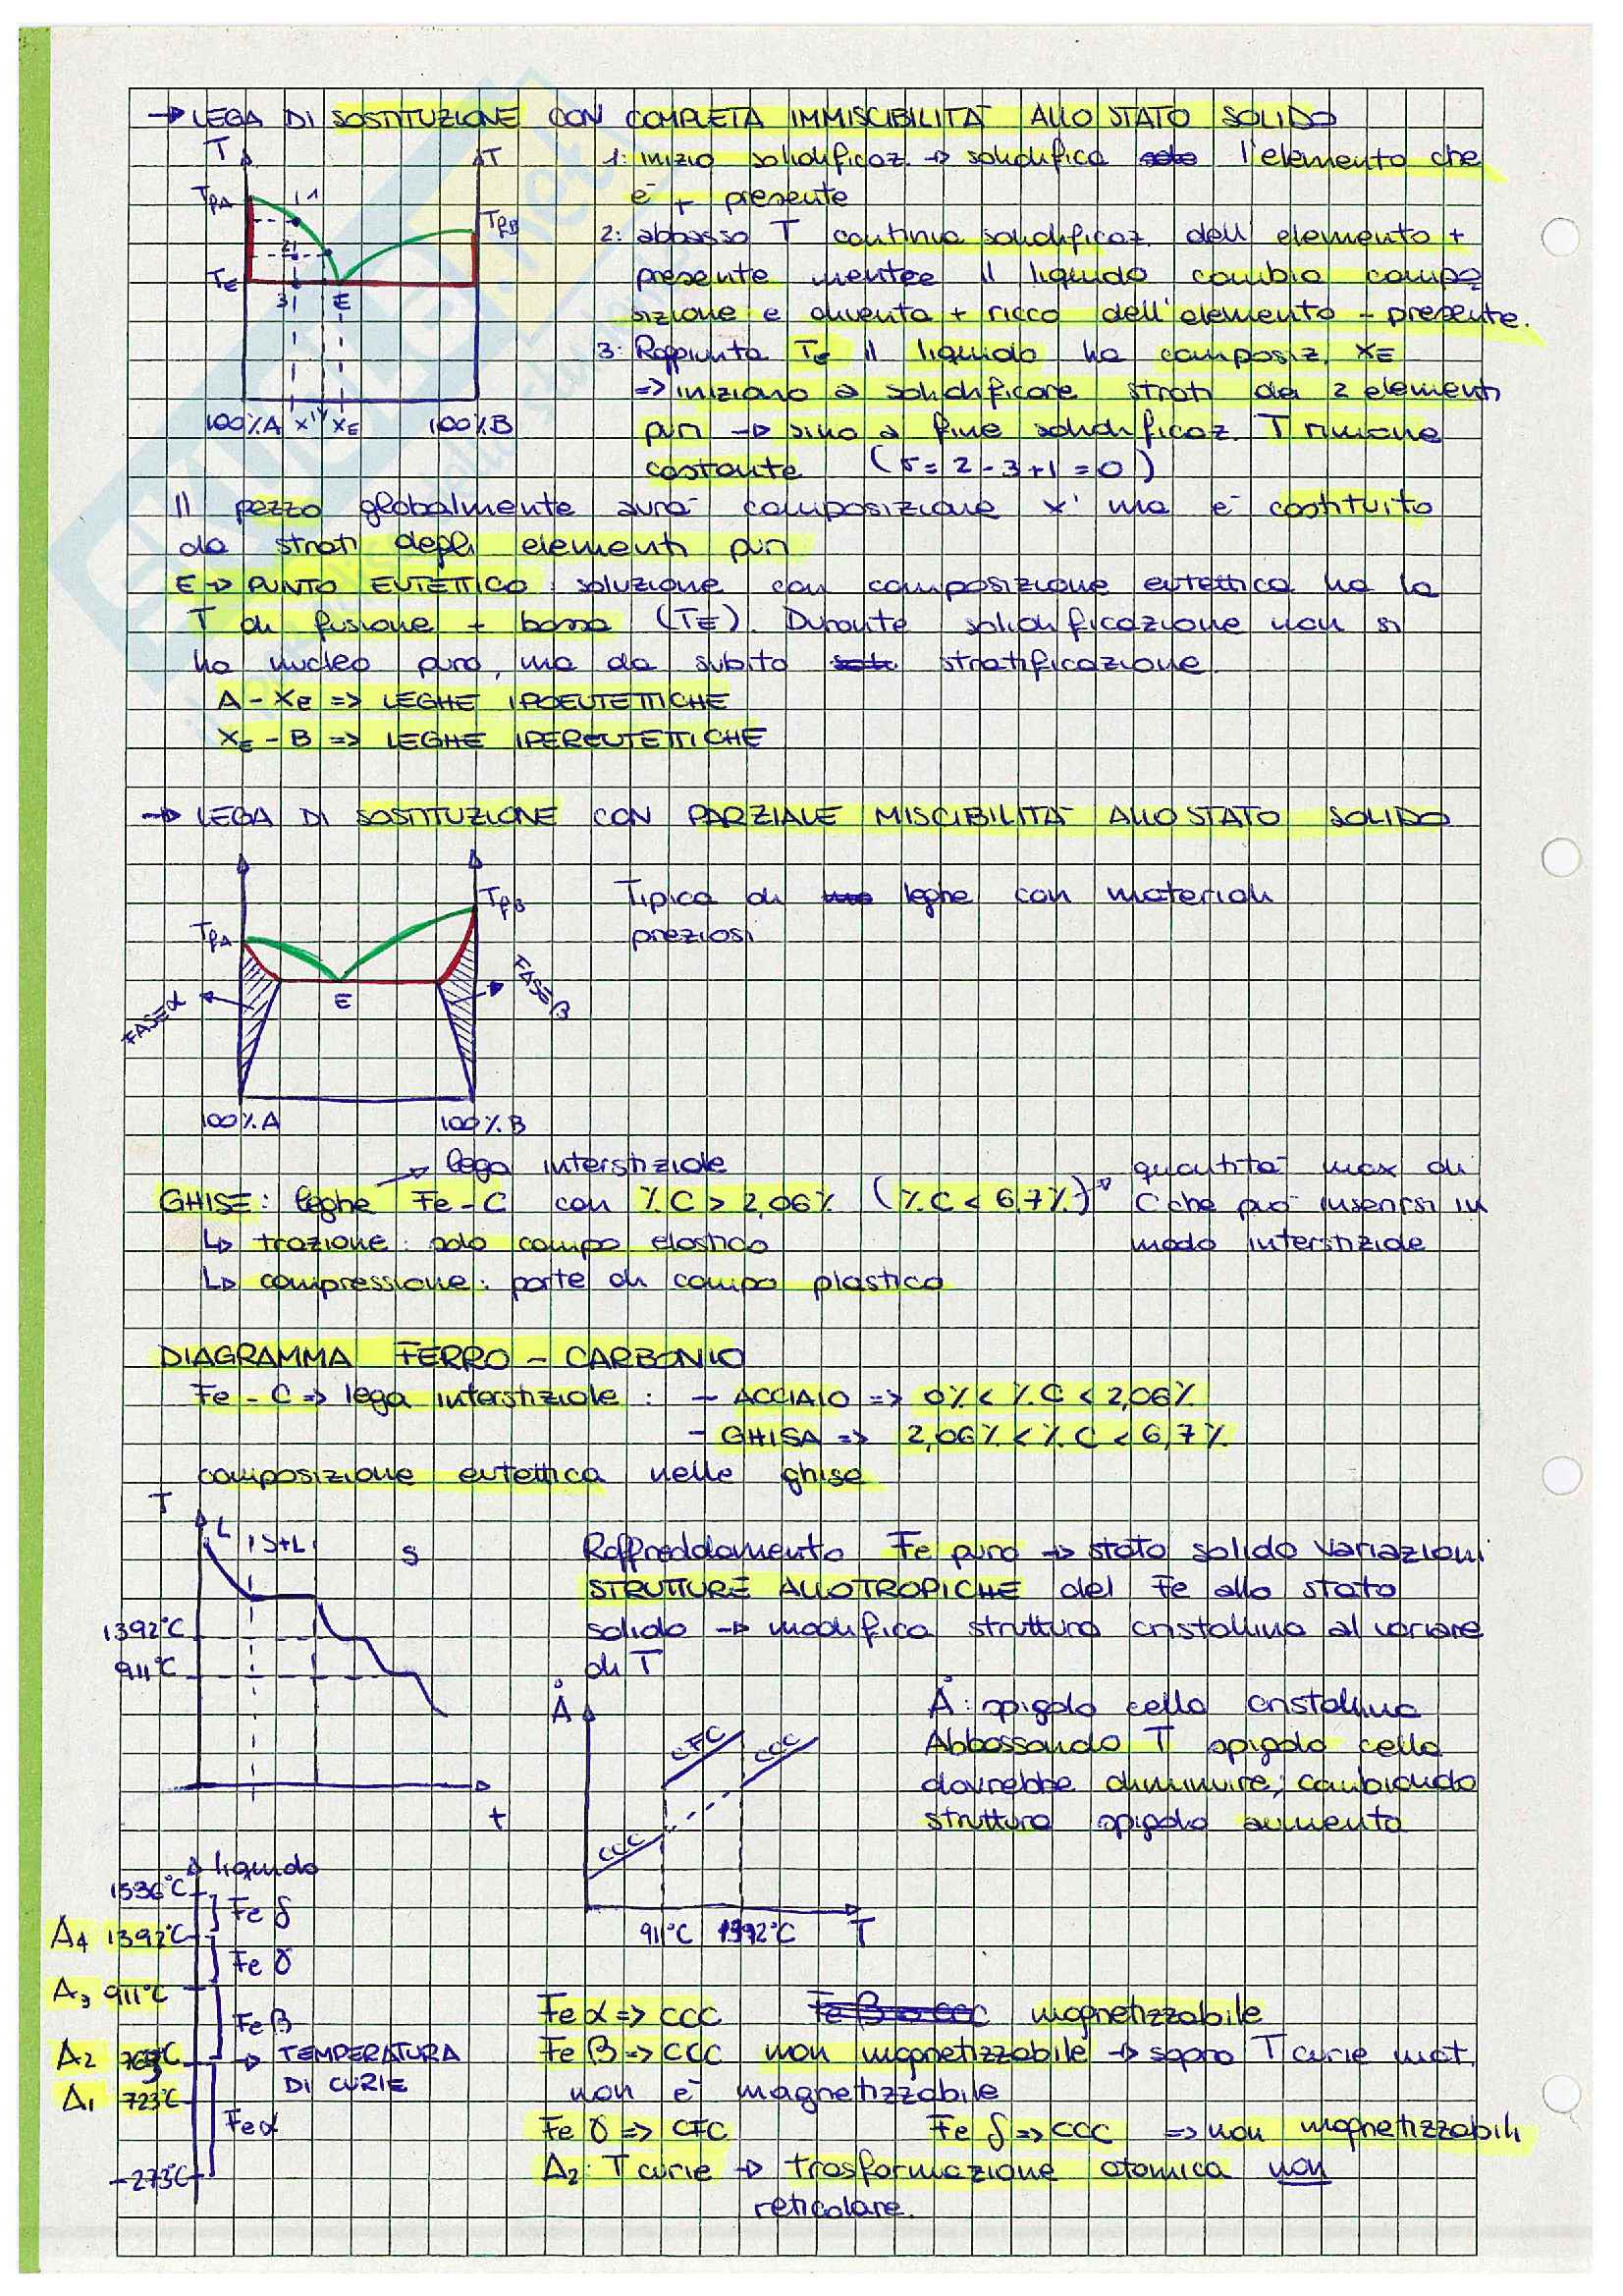 → LEGA DI SOSTITUZIONE CON COMPLETA IMMISCIBILITA' ALLO STATO SOLIDO
T
T
TfA
TfB
TE
1
2
3
E
100%A x' xE 100%B
1: inizio solidificaz. → solidifica l'elemento che
è + presente
2: abbasso T continua solidificaz. dell'elemento +
presente mentre il liquido cambia compo
sizione e diventa + ricco dell'elemento - presente.
3: Raggiunta TE il liquido ha composiz. XE
=> iniziano a solidificare strati dei 2 elementi
puri → sino a fine solidificaz. T rimane
costante (σ = 2 - 3 + 1 = 0)
Il pezzo globalmente avrà composizione x' ma è costituito
da strati degli elementi puri
E → PUNTO EUTETTICO: soluzione con composizione eutettica ha la
T di fusione + bassa (TE). Durante solidificazione non si
ha nucleo puro, ma da subito stratificazione.
A - XE => LEGHE IPOEUTETTICHE
XE - B => LEGHE IPEREUTETTICHE
→ LEGA DI SOSTITUZIONE CON PARZIALE MISCIBILITA' ALLO STATO SOLIDO
TfA
TfB
E
FASE α
FASE β
100%A 100%B
Tipica di leghe con materiali
preziosi
→ lega interstiziale
GHISE: leghe Fe-C con %C > 2,06% (%C < 6,7%) → quantità max di
C che può inserirsi in
modo interstiziale
↳ trazione: solo campo elastico
↳ compressione: parte di campo plastico
DIAGRAMMA FERRO - CARBONIO
Fe-C => lega interstiziale: - ACCIAIO => 0% < %C < 2,06%
- GHISA => 2,06% < %C < 6,7%
composizione eutettica nelle ghise
T
L S+L S
1392°C
911°C
t
Raffreddamento Fe puro → stato solido variazioni
STRUTTURE ALLOTROPICHE del Fe allo stato
solido → modifica struttura cristallina al variare
di T
Å
CFC
CCC
CCC
911°C 1392°C T
Å: spigolo cella cristallina
Abbassando T spigolo cella
dovrebbe diminuire, cambiando
struttura spigolo aumenta
liquido
1536°C
Fe δ
A4 1392°C
Fe γ
A3 911°C
Fe β
A2 769°C → TEMPERATURA
DI CURIE
A1 723°C
Fe α
-273°C
Fe α => CCC magnetizzabile
Fe β => CCC non magnetizzabile → sopra T curie mat.
non è magnetizzabile
Fe γ => CFC Fe δ => CCC => non magnetizzabili
A2: T curie → trasformazione atomica non
reticolare.